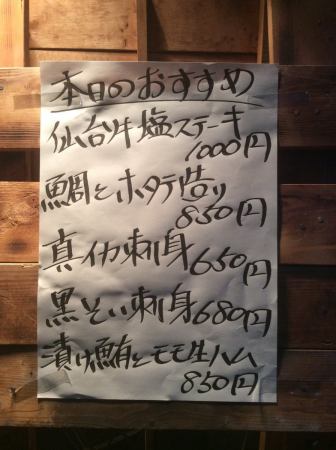 本日のおすすめ
仙台牛塩ステーキ
1000円
鯛とホタテ造り
850円
真イカ刺身650円
黒そい刺身680円
漬け鮪とモモ生ハム
850円